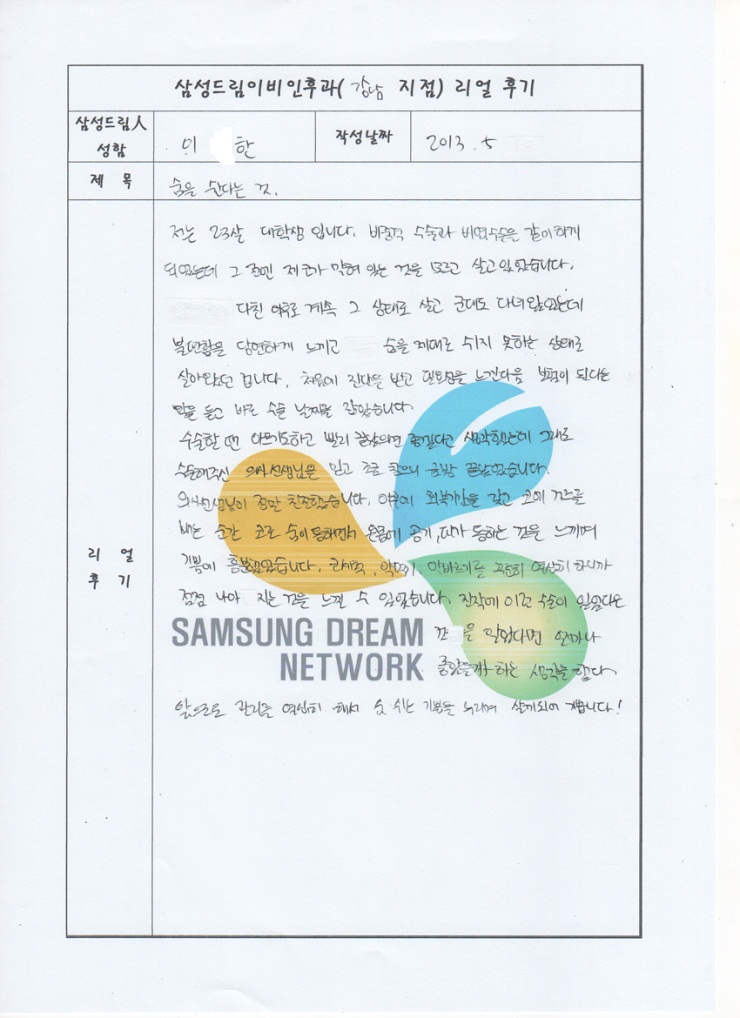 삼성드림이비인후과( 강남 지점) 리얼 후기
삼성드림人 성함
이 한
작성날짜
2013. 5
제 목
숨을 쉰다는 것.
리 얼 후 기
저는 23살 대학생 입니다. 비중격 수술과 비염수술을 같이하게
되었는데 그 전엔 제 코가 막혀 있는 것을 모르고 살고있었습니다.
다친 이후로 계속 그 상태로 살고 군대도 다녀왔었는데
불편함을 당연하게 느끼고 숨을 제대로 쉬지 못하는 상태로
살아왔던 겁니다. 처음에 진단을 받고 필요성을 느낀다음 보험이 된다는
말을 듣고 바로 수술 날짜를 잡았습니다.
수술할 땐 아프기도하고 빨리 끝났으면 좋겠다고 생각했는데 그대로
수술해주신 의사선생님을 믿고 조금 참으니 금방 끝났었습니다.
의사선생님이 정말 친절했습니다. 이후에 회복기간을 갖고 코의 거즈를
빼는 순간 코로 숨이 통하면서 온몸에 공기, 피가 통하는 것을 느끼며
기쁨에 흥분했었습니다. 코세척, 약먹기, 약바르기를 꾸준히 열심히 하니까
점점 나아 지는 것을 느낄 수 있었습니다. 진작에 이런 수술이 있었다는
것 을 알았다면 얼마나
좋았을까 하는 생각을 했다
앞으로 관리를 열심히 해서 숨 쉬는 기쁨을 누리며 살게되어 기쁩니다!
SAMSUNG DREAM
NETWORK